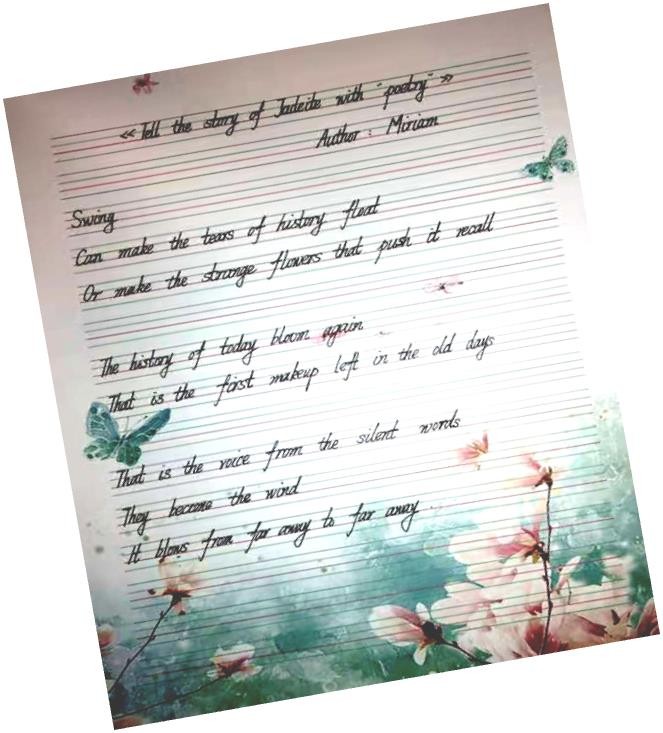 《Tell the story of Jadeite with "poetry"》
Author : Miriam
Swing
Can make the tears of history float
Or make the strange flowers that push it recall
The history of today bloom again
That is the first makeup left in the old days
That is the voice from the silent words
They become the wind
It blows from far away to far away